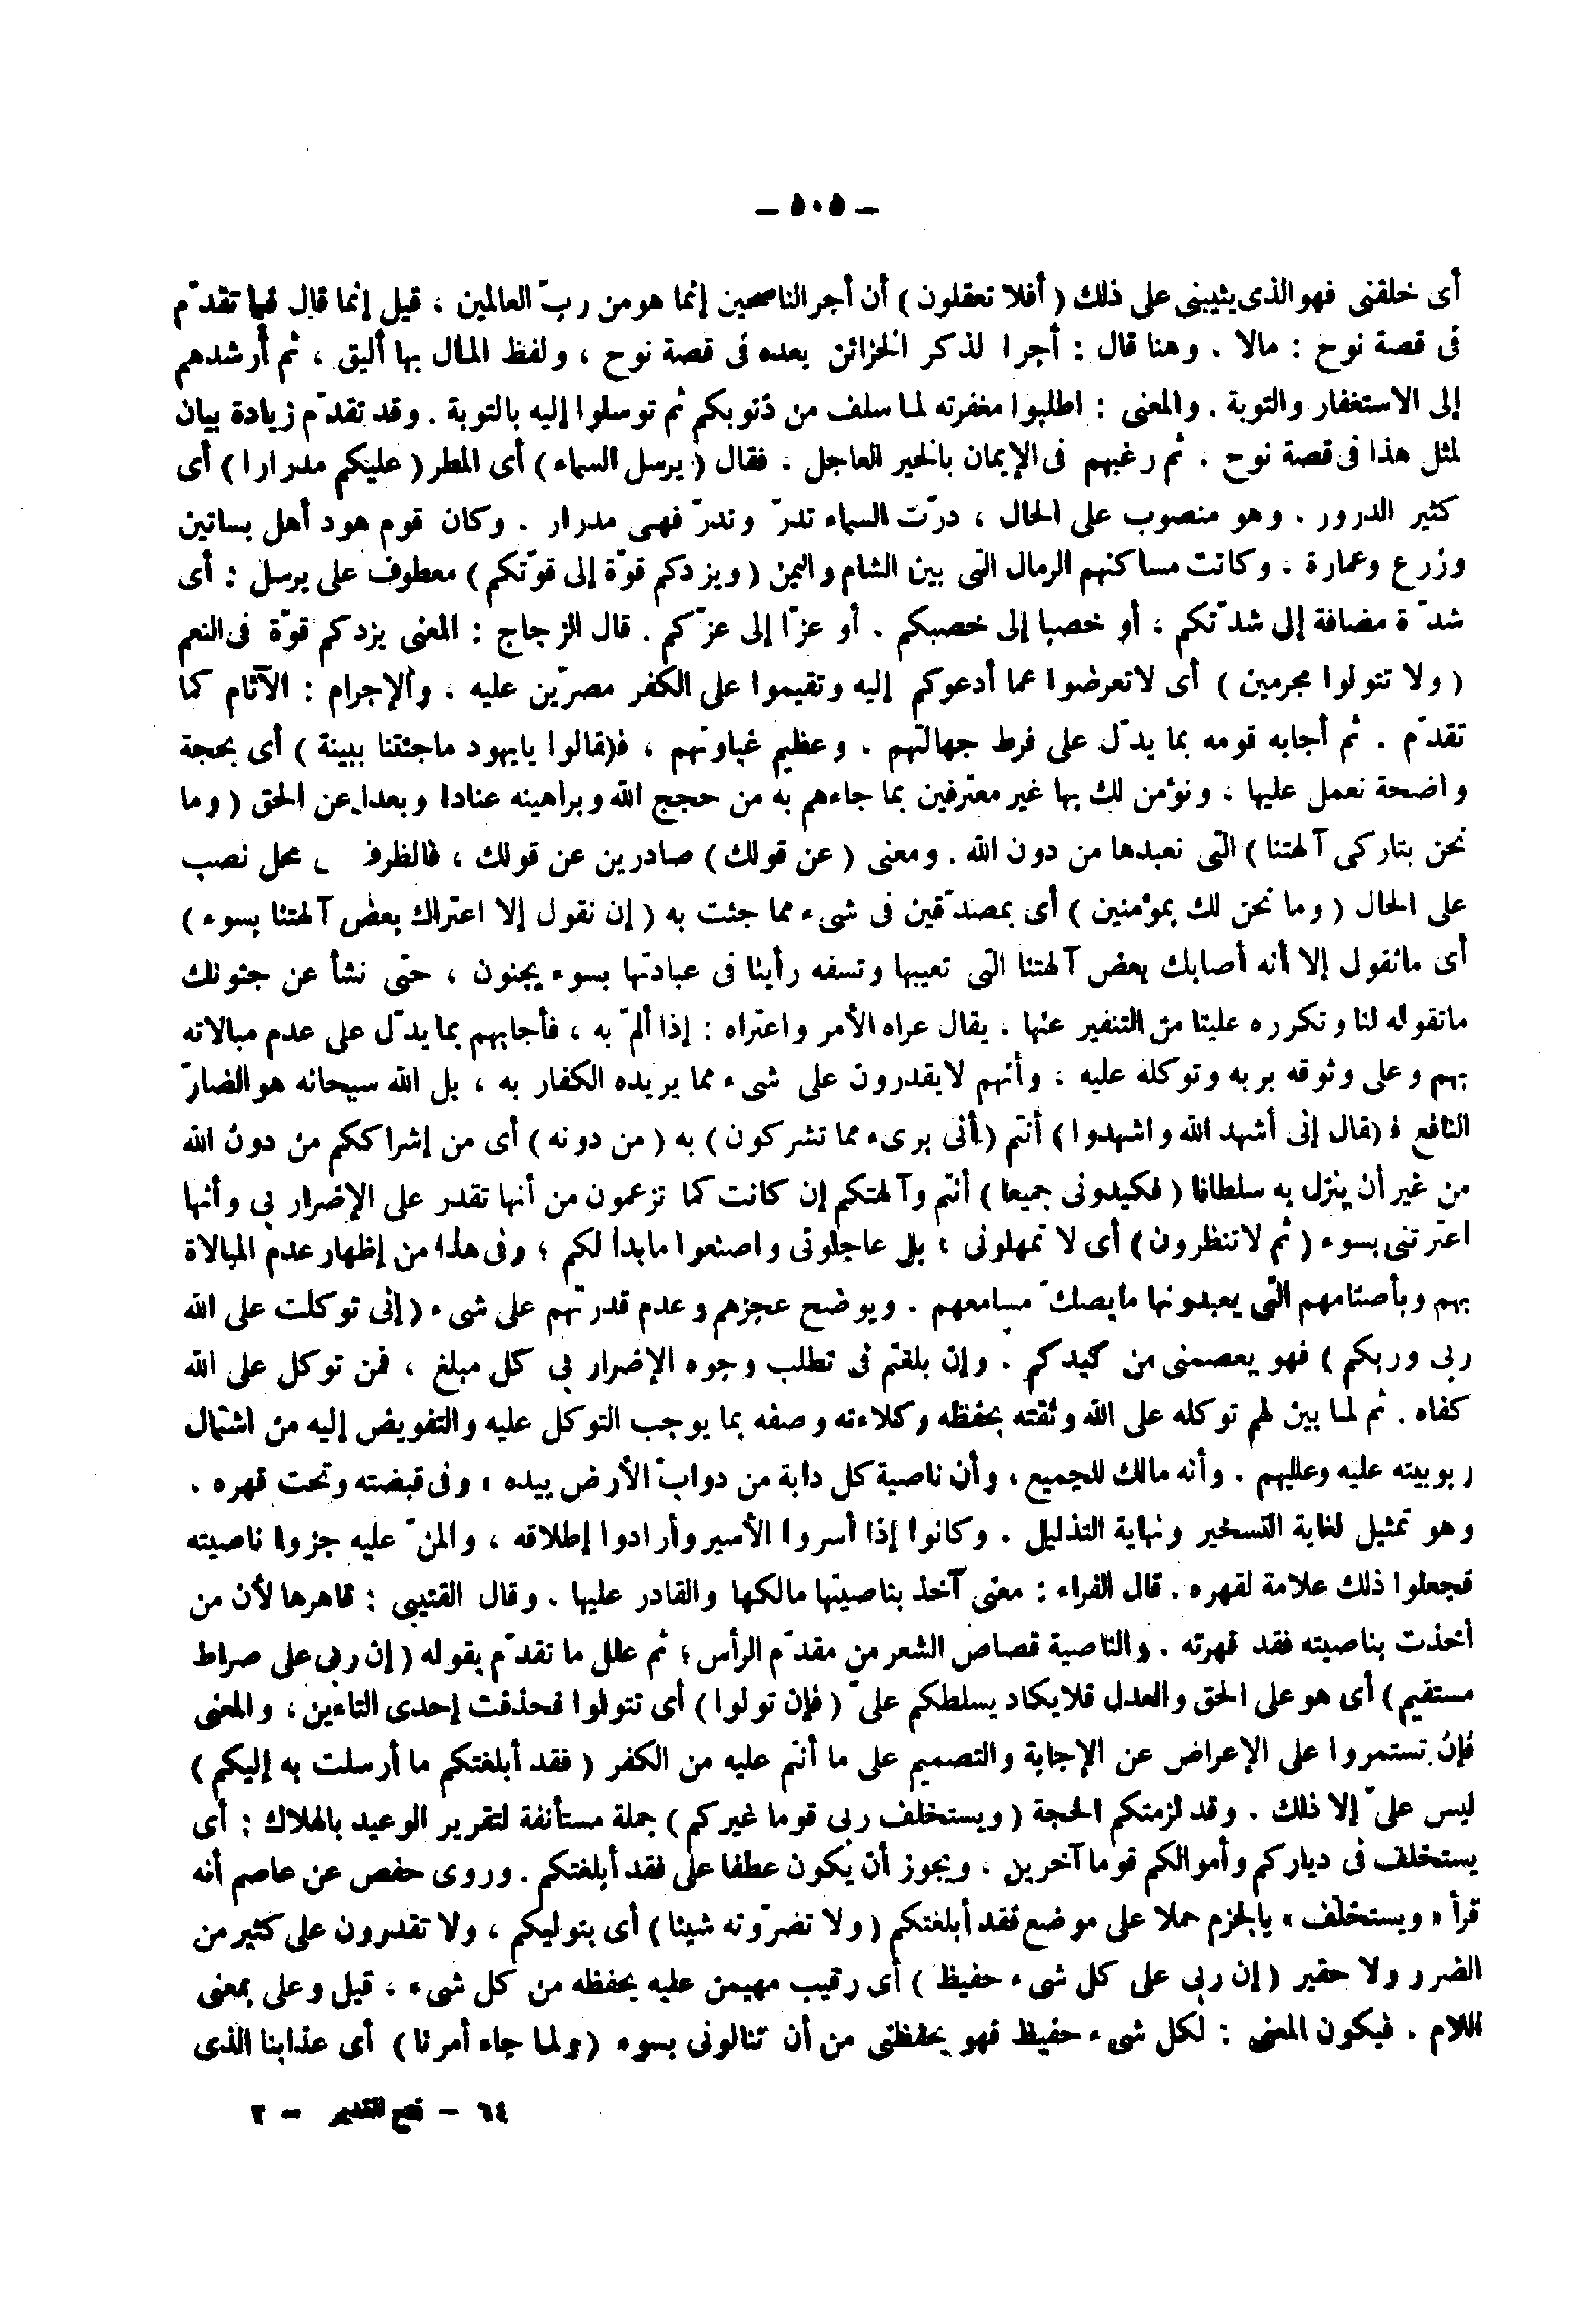 – ٥٠٥ –
أى خلقنى فهو الذى يثيبنى على ذلك ( أفلا تعقلون ) أن أجر الناصحين إنما هو من ربّ العالمين ، قيل إنما قال فيما تقدّم
فى قصة نوح : مالا . وهنا قال : أجرا لذكر الخزائن بعده فى قصة نوح ، ولفظ المال بها أليق ، ثم أرشدهم
إلى الاستغفار والتوبة . والمعنى : اطلبوا مغفرته لما سلف من ذنوبكم ثم توسلوا إليه بالتوبة . وقد تقدّم زيادة بيان
لمثل هذا فى قصة نوح . ثم رغبهم فى الإيمان بالخير العاجل . فقال ( يرسل السماء ) أى المطر ( عليكم مدرارا ) أى
كثير الدرور . وهو منصوب على الحال ، درّت السماء تدرّ وتدرّ فهى مدرار . وكان قوم هود أهل بساتين
وزرع وعمارة . وكانت مساكنهم الرمال التى بين الشام واليمن ( ويزدكم قوّة إلى قوّتكم ) معطوف على يرسل : أى
شدّة مضافة إلى شدّتكم ، أو خصبا إلى خصبكم . أو عزّا إلى عزّكم . قال الزجاج : المعنى يزدكم قوّة فى النعم
( ولا تتولوا مجرمين ) أى لاتعرضوا عما أدعوكم إليه وتقيموا على الكفر مصرّين عليه ، والإجرام : الآثام كما
تقدّم . ثم أجابه قومه بما يدلّ على فرط جهالتهم . وعظيم غباوتهم ، فـ(قالوا ياهود ماجئتنا ببينة ) أى بحجة
واضحة نعمل عليها ، ونؤمن لك بها غير معترفين بما جاءهم به من حجج الله وبراهينه عنادا وبعدا عن الحق ( وما
نحن بتاركى آلهتنا ) التى نعبدها من دون الله . ومعنى ( عن قولك ) صادرين عن قولك ، فالظرف محل نصب
على الحال ( وما نحن لك بمؤمنين ) أى بمصدّقين فى شىء مما جئت به ( إن نقول إلا اعتراك بعض آلهتنا بسوء )
أى مانقول إلا أنه أصابك بعض آلهتنا التى تعيبها وتسفه رأينا فى عبادتها بسوء يجنون ، حتى نشأ عن جنونك
ماتقوله لنا وتكرره علينا من التنفير عنها . يقال عراه الأمر واعتراه : إذا ألمّ به ، فأجابهم بما يدلّ على عدم مبالاته
بهم وعلى وثوقه بربه وتوكله عليه ، وأنهم لايقدرون على شىء مما يريده الكفار به ، بل الله سبحانه هو الضارّ
النافع فـ (قال إنى أشهد الله واشهدوا ) أنتم ( أنى برىء مما تشركون ) به ( من دونه ) أى من إشراككم من دون الله
من غير أن ينزل به سلطانا ( فكيدونى جميعا ) أنتم وآلهتكم إن كانت كما تزعمون من أنها تقدر على الإضرار بى وأنها
اعترتنى بسوء ( ثم لاتنظرون ) أى لا تمهلونى ، بل عاجلونى واصنعوا مابدا لكم ؛ وفى هذا من إظهار عدم المبالاة
بهم وبأصنامهم التى يعبدونها مايصكّ مسامعهم . ويوضح عجزهم وعدم قدرتهم على شىء ( إنى توكلت على الله
ربى وربكم ) فهو يعصمنى من كيدكم . وإن بلغتم فى تطلب وجوه الإضرار بى كل مبلغ ، فمن توكل على الله
كفاه . ثم لما بين لهم توكله على الله وثقته بحفظه وكلاءته وصفه بما يوجب التوكل عليه والتفويض إليه من اشتمال
ربوبيته عليه وعليهم . وأنه مالك للجميع ، وأن ناصية كل دابة من دوابّ الأرض بيده ، وفى قبضته وتحت قهره .
وهو تمثيل لغاية التسخير ونهاية التذليل . وكانوا إذا أسروا الأسير وأرادوا إطلاقه ، والمنّ عليه جزوا ناصيته
فجعلوا ذلك علامة لقهره . قال الفراء : معنى آخذ بناصيتها مالكها والقادر عليها . وقال القتيبى : قاهرها لأن من
أخذت بناصيته فقد قهرته . والناصية قصاص الشعر من مقدّم الرأس ؛ ثم علل ما تقدّم بقوله ( إن ربى على صراط
مستقيم ) أى هو على الحق والعدل فلايكاد يسلطكم علىّ ( فإن تولوا ) أى تتولوا فحذفت إحدى التاءين ، والمعنى
فإن تستمروا على الإعراض عن الإجابة والتصميم على ما أنتم عليه من الكفر ( فقد أبلغتكم ما أرسلت به إليكم )
ليس علىّ إلا ذلك . وقد لزمتكم الحجة ( ويستخلف ربى قوما غيركم ) جملة مستأنفة لتقرير الوعيد بالهلاك : أى
يستخلف فى دياركم وأموالكم قوما آخرين ، ويجوز أن يكون عطفا على فقد أبلغتكم . وروى حفص عن عاصم أنه
قرأ « ويستخلف » بالجزم حملا على موضع فقد أبلغتكم ( ولا تضرّونه شيئا ) أى بتوليكم ، ولا تقدرون على كثير من
الضرر ولا حقير ( إن ربى على كل شىء حفيظ ) أى رقيب مهيمن عليه يحفظه من كل شىء ، قيل وعلى بمعنى
اللام . فيكون المعنى : لكل شىء حفيظ فهو يحفظنى من أن تنالونى بسوء ( ولما جاء أمرنا ) أى عذابنا الذى
٦٤ – فتح القدير – ٢